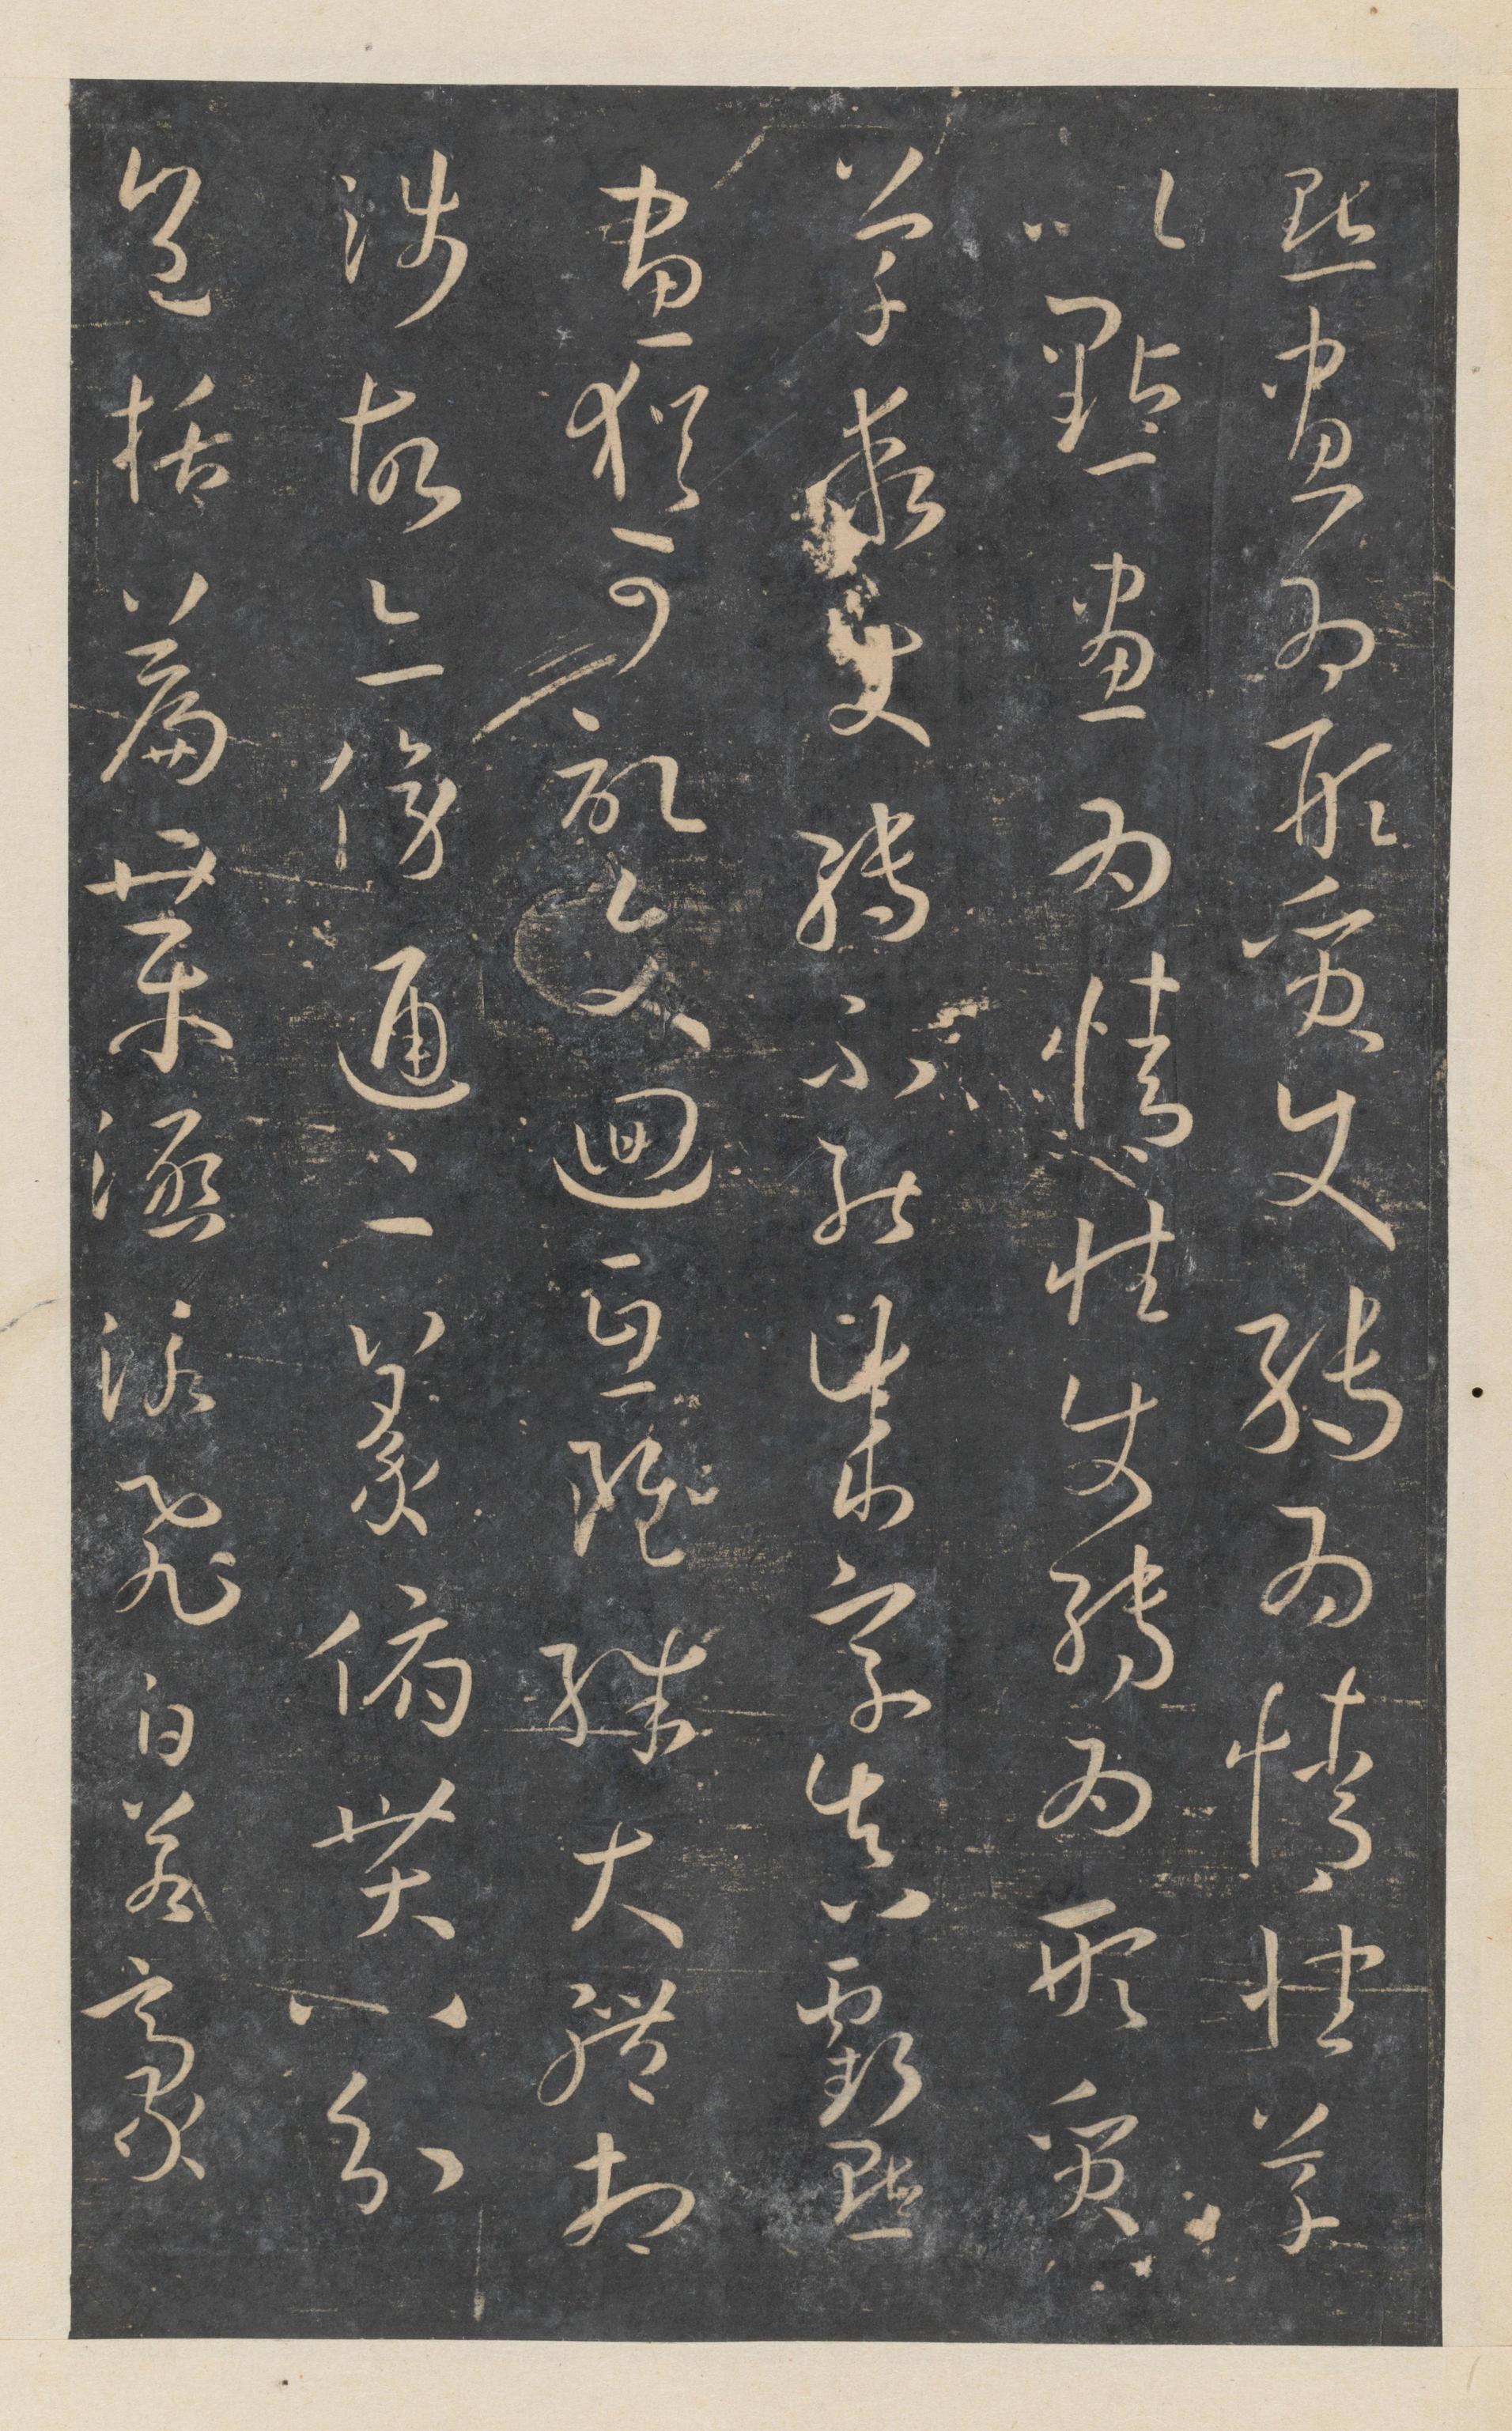 點畫為形質使轉為情性草
以點畫為情性使轉為形質
草乖使轉不能成字真虧點
畫猶可記文迴互雖殊大體相
涉故亦傍通二篆俯貫八分
包括篇章涵泳飛白若豪